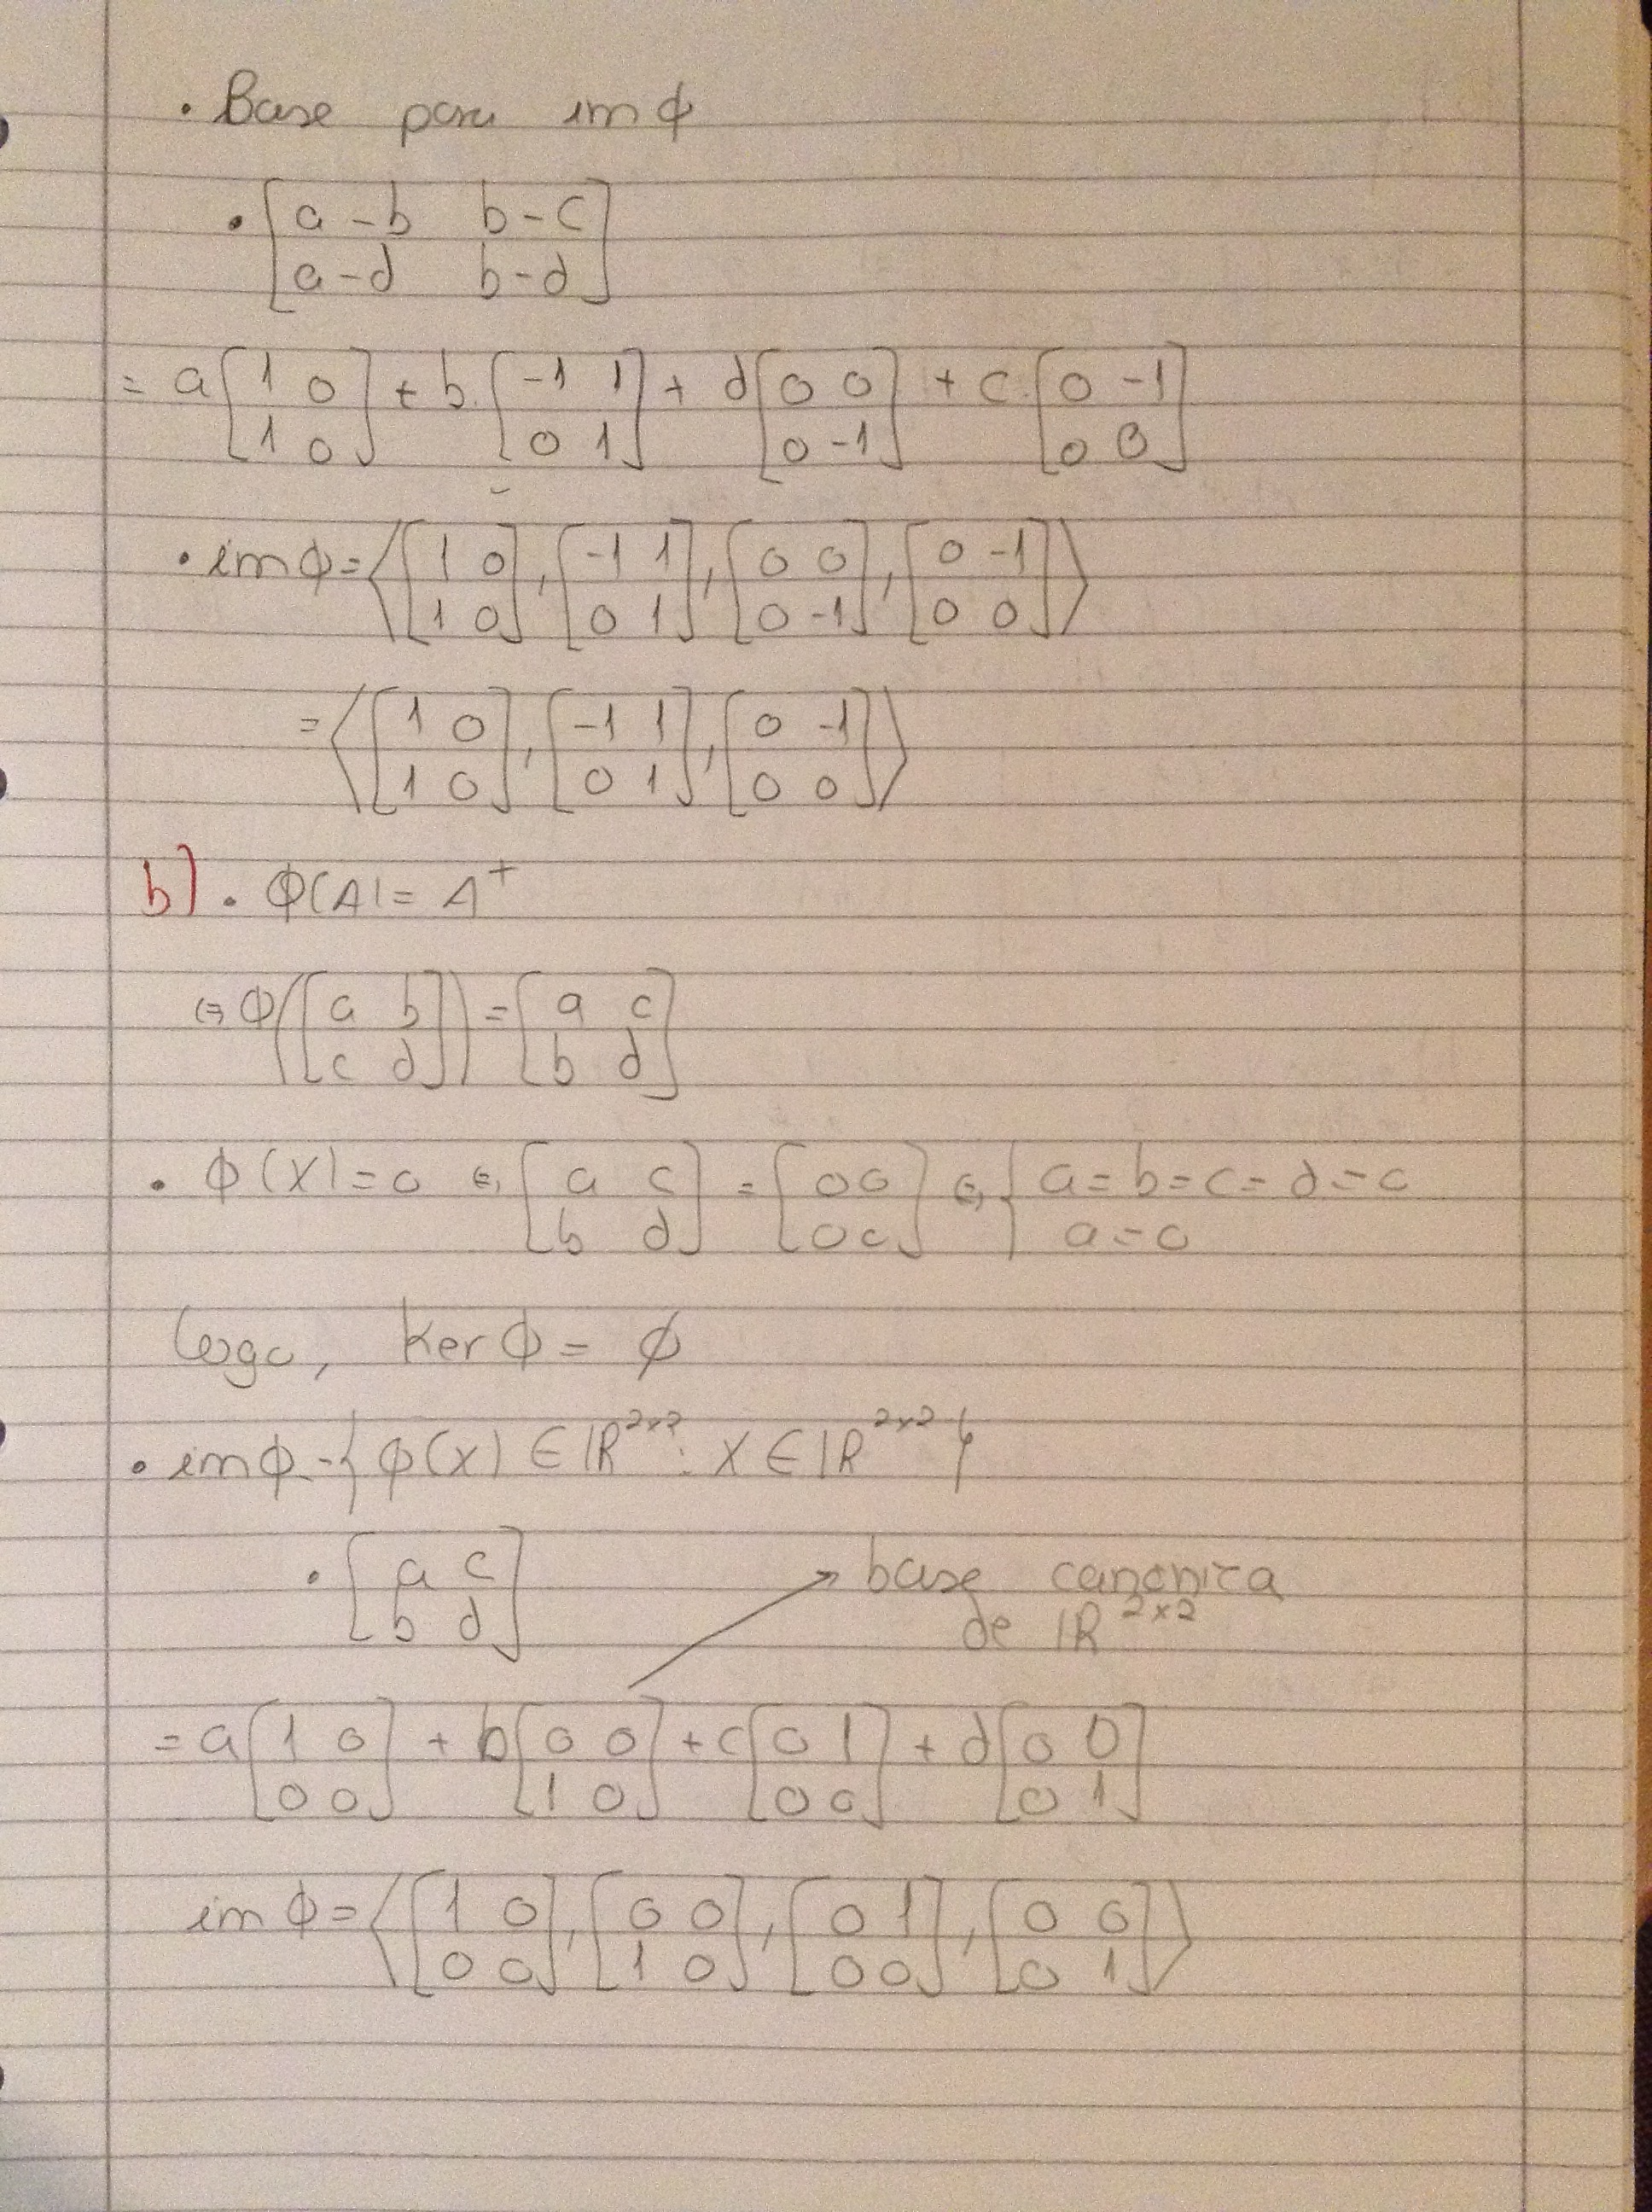 • Base para im ϕ
• [a-b b-c
a-d b-d]
= a [1 0
1 0] + b. [-1 1
0 1] + d [0 0
0 -1] + c. [0 -1
0 0]
• im ϕ = ⟨[1 0
1 0], [-1 1
0 1], [0 0
0 -1], [0 -1
0 0]⟩
= ⟨[1 0
1 0], [-1 1
0 1], [0 -1
0 0]⟩
b) • ϕ(A) = A^t
⇔ ϕ([a b
c d]) = [a c
b d]
• ϕ(X) = 0 ⇔ [a c
b d] = [0 0
0 0] ⇔ { a = b = c = d = 0
a = 0
Logo, Ker ϕ = ∅
• im ϕ = { ϕ(X) ∈ ℝ^{2×2} : X ∈ ℝ^{2×2} }
• [a c
b d]
→ base canonica
de ℝ^{2×2}
= a [1 0
0 0] + b [0 0
1 0] + c [0 1
0 0] + d [0 0
0 1]
im ϕ = ⟨[1 0
0 0], [0 0
1 0], [0 1
0 0], [0 0
0 1]⟩